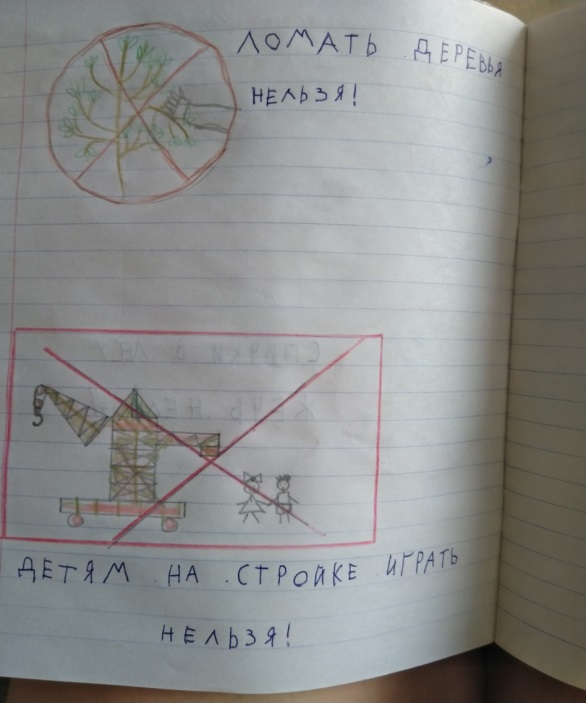 ЛОМАТЬ ДЕРЕВЬЯ
НЕЛЬЗЯ!
ДЕТЯМ НА СТРОЙКЕ ИГРАТЬ
НЕЛЬЗЯ!